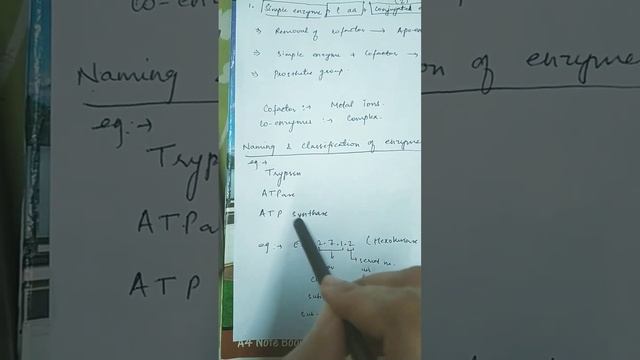 1. Simple enzyme
conjugated
⇒ Removal of cofactor → Apo-en
⇒ Simple enzyme + Cofactor →
⇒ Prosthetic group
Cofactor :→ Metal ions.
Co-enzymes :→ Complex.
Naming & Classification of enzyme
eg :→
Trypsin
ATPase
ATP synthase
eg :→ E 2.7.1.2 (Hexokinase
serial no.
A4 Note Boo